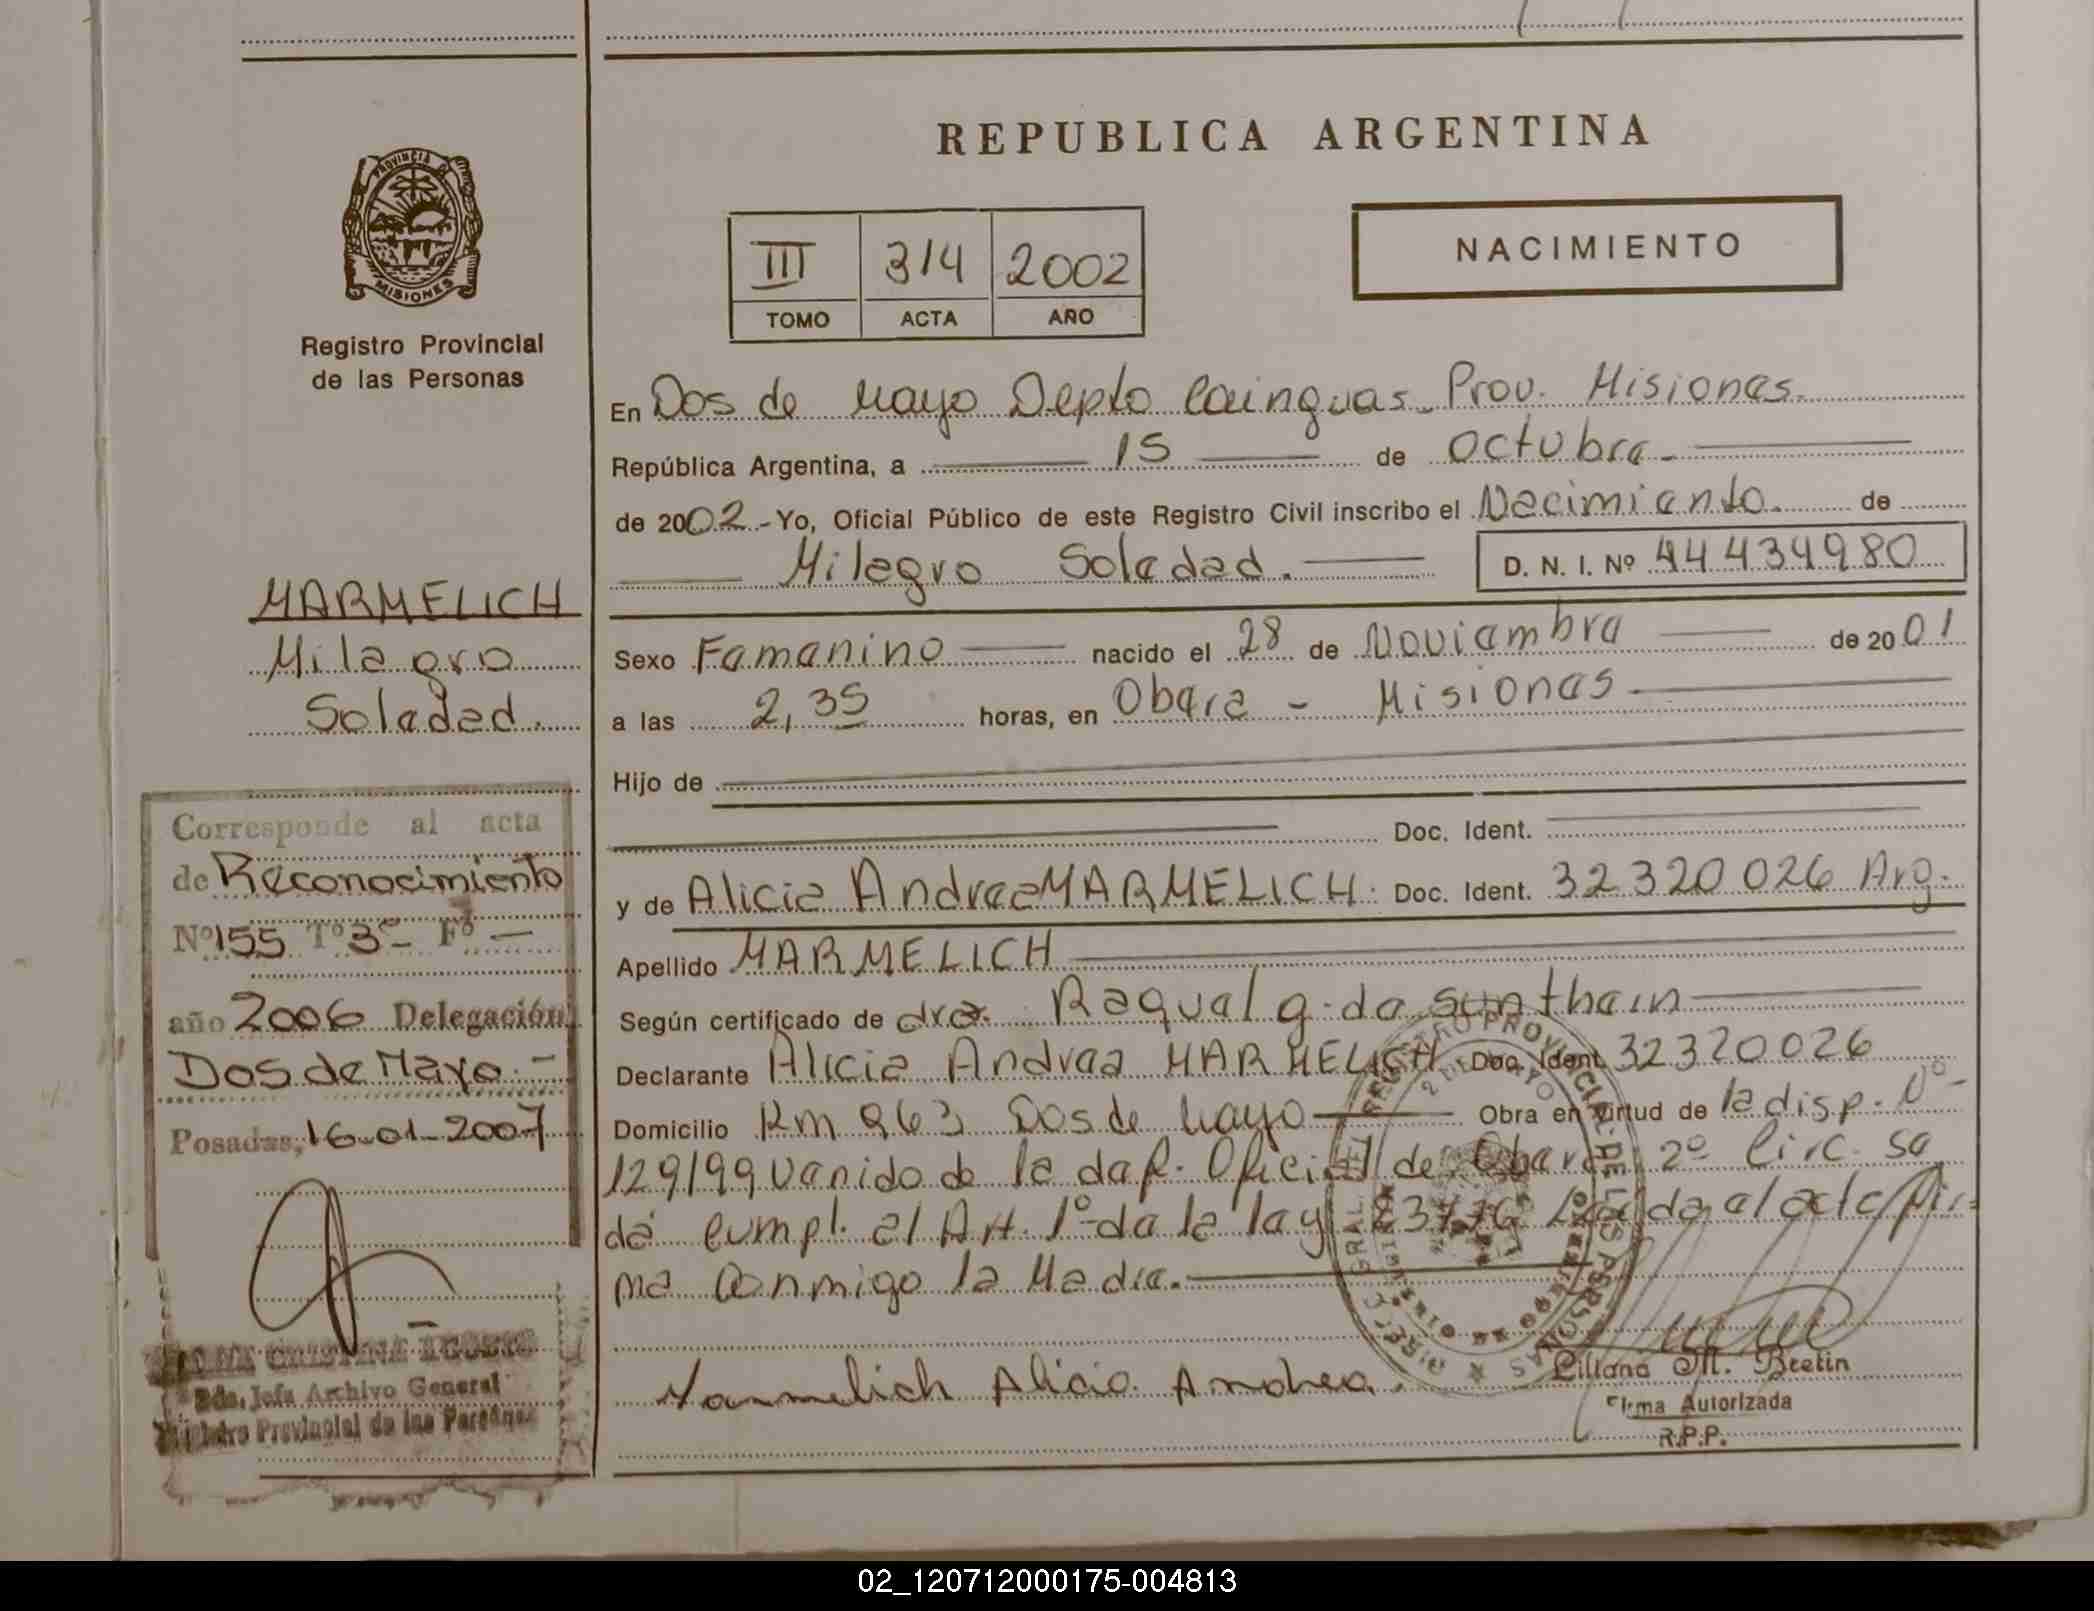 REPUBLICA ARGENTINA
PROVINCIA DE
MISIONES
Registro Provincial
de las Personas
III 314 2002
TOMO ACTA AÑO
NACIMIENTO
En Dos de Mayo Depto Cainguas. Prov. Misiones.
República Argentina, a 15 de octubre.
de 2002.- Yo, Oficial Público de este Registro Civil inscribo el Nacimiento. de
Milagro Soledad. D. N. I. Nº 44 434980
MARMELICH
Milagro
Soledad.
Sexo Femenino nacido el 28 de Noviembre de 2001
a las 2,35 horas, en Oberá - Misiones
Hijo de
Doc. Ident.
y de Alicia Andrea MARMELICH. Doc. Ident. 32320026 Arg.
Apellido MARMELICH
Según certificado de dra. Raquel g. de
Declarante Alicia Andrea MARMELICH Doc. Ident. 32320026
Domicilio Km 963 Dos de Mayo Obra en virtud de la disp. Nº
129/99 venido de la Oficial de 2º Circ. se
dá cumpl. al Art. 1º de la ley el acta fir-
ma conmigo la Madre.
Marmelich Alicia Andrea.
Liliana M. Bretin
Firma Autorizada
R.P.P.
Corresponde al acta
de Reconocimiento
Nº 155 Tº 3º Fº —
año 2006 Delegación
Dos de Mayo.-
Posadas, 16-01-2007
CRISTINA
Jefa Archivo General
Registro Provincial de las Personas
02_120712000175-004813